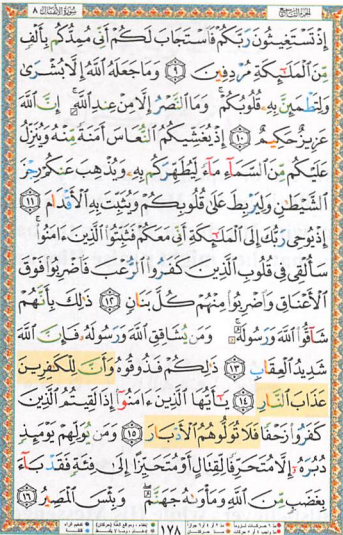 سورة الأنفال ٨
إِذْ تَسْتَغِيثُونَ رَبَّكُمْ فَاسْتَجَابَ لَكُمْ أَنِّي مُمِدُّكُم بِأَلْفٍ
مِّنَ الْمَلَٰٓئِكَةِ مُرْدِفِينَ ٩ وَمَا جَعَلَهُ اللَّهُ إِلَّا بُشْرَىٰ
وَلِتَطْمَئِنَّ بِهِۦ قُلُوبُكُمْ ۚ وَمَا النَّصْرُ إِلَّا مِنْ عِندِ اللَّهِ ۚ إِنَّ اللَّهَ
عَزِيزٌ حَكِيمٌ ١٠ إِذْ يُغَشِّيكُمُ النُّعَاسَ أَمَنَةً مِّنْهُ وَيُنَزِّلُ
عَلَيْكُم مِّنَ السَّمَآءِ مَآءً لِّيُطَهِّرَكُم بِهِۦ وَيُذْهِبَ عَنكُمْ رِجْزَ
الشَّيْطَٰنِ وَلِيَرْبِطَ عَلَىٰ قُلُوبِكُمْ وَيُثَبِّتَ بِهِ الْأَقْدَامَ ١١
إِذْ يُوحِي رَبُّكَ إِلَى الْمَلَٰٓئِكَةِ أَنِّي مَعَكُمْ فَثَبِّتُوا الَّذِينَ ءَامَنُوا ۚ
سَأُلْقِي فِي قُلُوبِ الَّذِينَ كَفَرُوا الرُّعْبَ فَاضْرِبُوا فَوْقَ
الْأَعْنَاقِ وَاضْرِبُوا مِنْهُمْ كُلَّ بَنَانٍ ١٢ ذَٰلِكَ بِأَنَّهُمْ
شَآقُّوا اللَّهَ وَرَسُولَهُۥ ۚ وَمَن يُشَاقِقِ اللَّهَ وَرَسُولَهُۥ فَإِنَّ اللَّهَ
شَدِيدُ الْعِقَابِ ١٣ ذَٰلِكُمْ فَذُوقُوهُ وَأَنَّ لِلْكَٰفِرِينَ
عَذَابَ النَّارِ ١٤ يَٰٓأَيُّهَا الَّذِينَ ءَامَنُوٓا إِذَا لَقِيتُمُ الَّذِينَ
كَفَرُوا زَحْفًا فَلَا تُوَلُّوهُمُ الْأَدْبَارَ ١٥ وَمَن يُوَلِّهِمْ يَوْمَئِذٍ
دُبُرَهُۥٓ إِلَّا مُتَحَرِّفًا لِّقِتَالٍ أَوْ مُتَحَيِّزًا إِلَىٰ فِئَةٍ فَقَدْ بَآءَ
بِغَضَبٍ مِّنَ اللَّهِ وَمَأْوَىٰهُ جَهَنَّمُ ۖ وَبِئْسَ الْمَصِيرُ ١٦
١٧٨